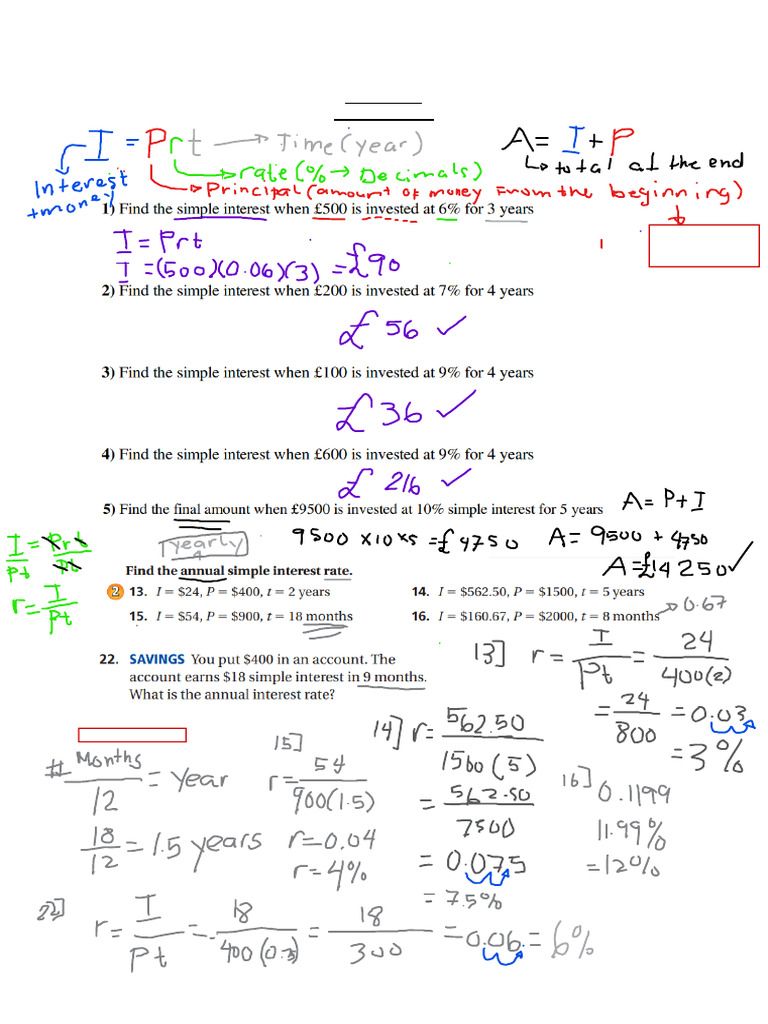 I = Prt → Time (year)
A = I + P
↳ total at the end
→ rate (% → Decimals)
Interest
+money
→ Principal (amount of money from the beginning)
1) Find the simple interest when £500 is invested at 6% for 3 years
I = Prt
I = (500)(0.06)(3) = £90
2) Find the simple interest when £200 is invested at 7% for 4 years
£56 ✓
3) Find the simple interest when £100 is invested at 9% for 4 years
£36 ✓
4) Find the simple interest when £600 is invested at 9% for 4 years
£216 ✓
5) Find the final amount when £9500 is invested at 10% simple interest for 5 years
A = P + I
9500 × 10 × 5 = £4750
A = 9500 + 4750
A = £14250 ✓
yearly
I/Pt = Prt/Pt
r = I/Pt
Find the annual simple interest rate.
2 13. I = $24, P = $400, t = 2 years
14. I = $562.50, P = $1500, t = 5 years
15. I = $54, P = $900, t = 18 months
16. I = $160.67, P = $2000, t = 8 months
→ 0.67
22. SAVINGS You put $400 in an account. The
account earns $18 simple interest in 9 months.
What is the annual interest rate?
13] r = I/Pt = 24/400(2)
= 24/800 = 0.03
= 3%
# Months/12 = Year
18/12 = 1.5 years
15]
r = 54/900(1.5)
r = 0.04
r = 4%
14] r = 562.50/1500(5)
= 562.50/7500
= 0.075
= 7.5%
16] 0.1199
11.99%
= 12%
22]
r = I/Pt = 18/400(0.75) = 18/300 = 0.06 = 6%